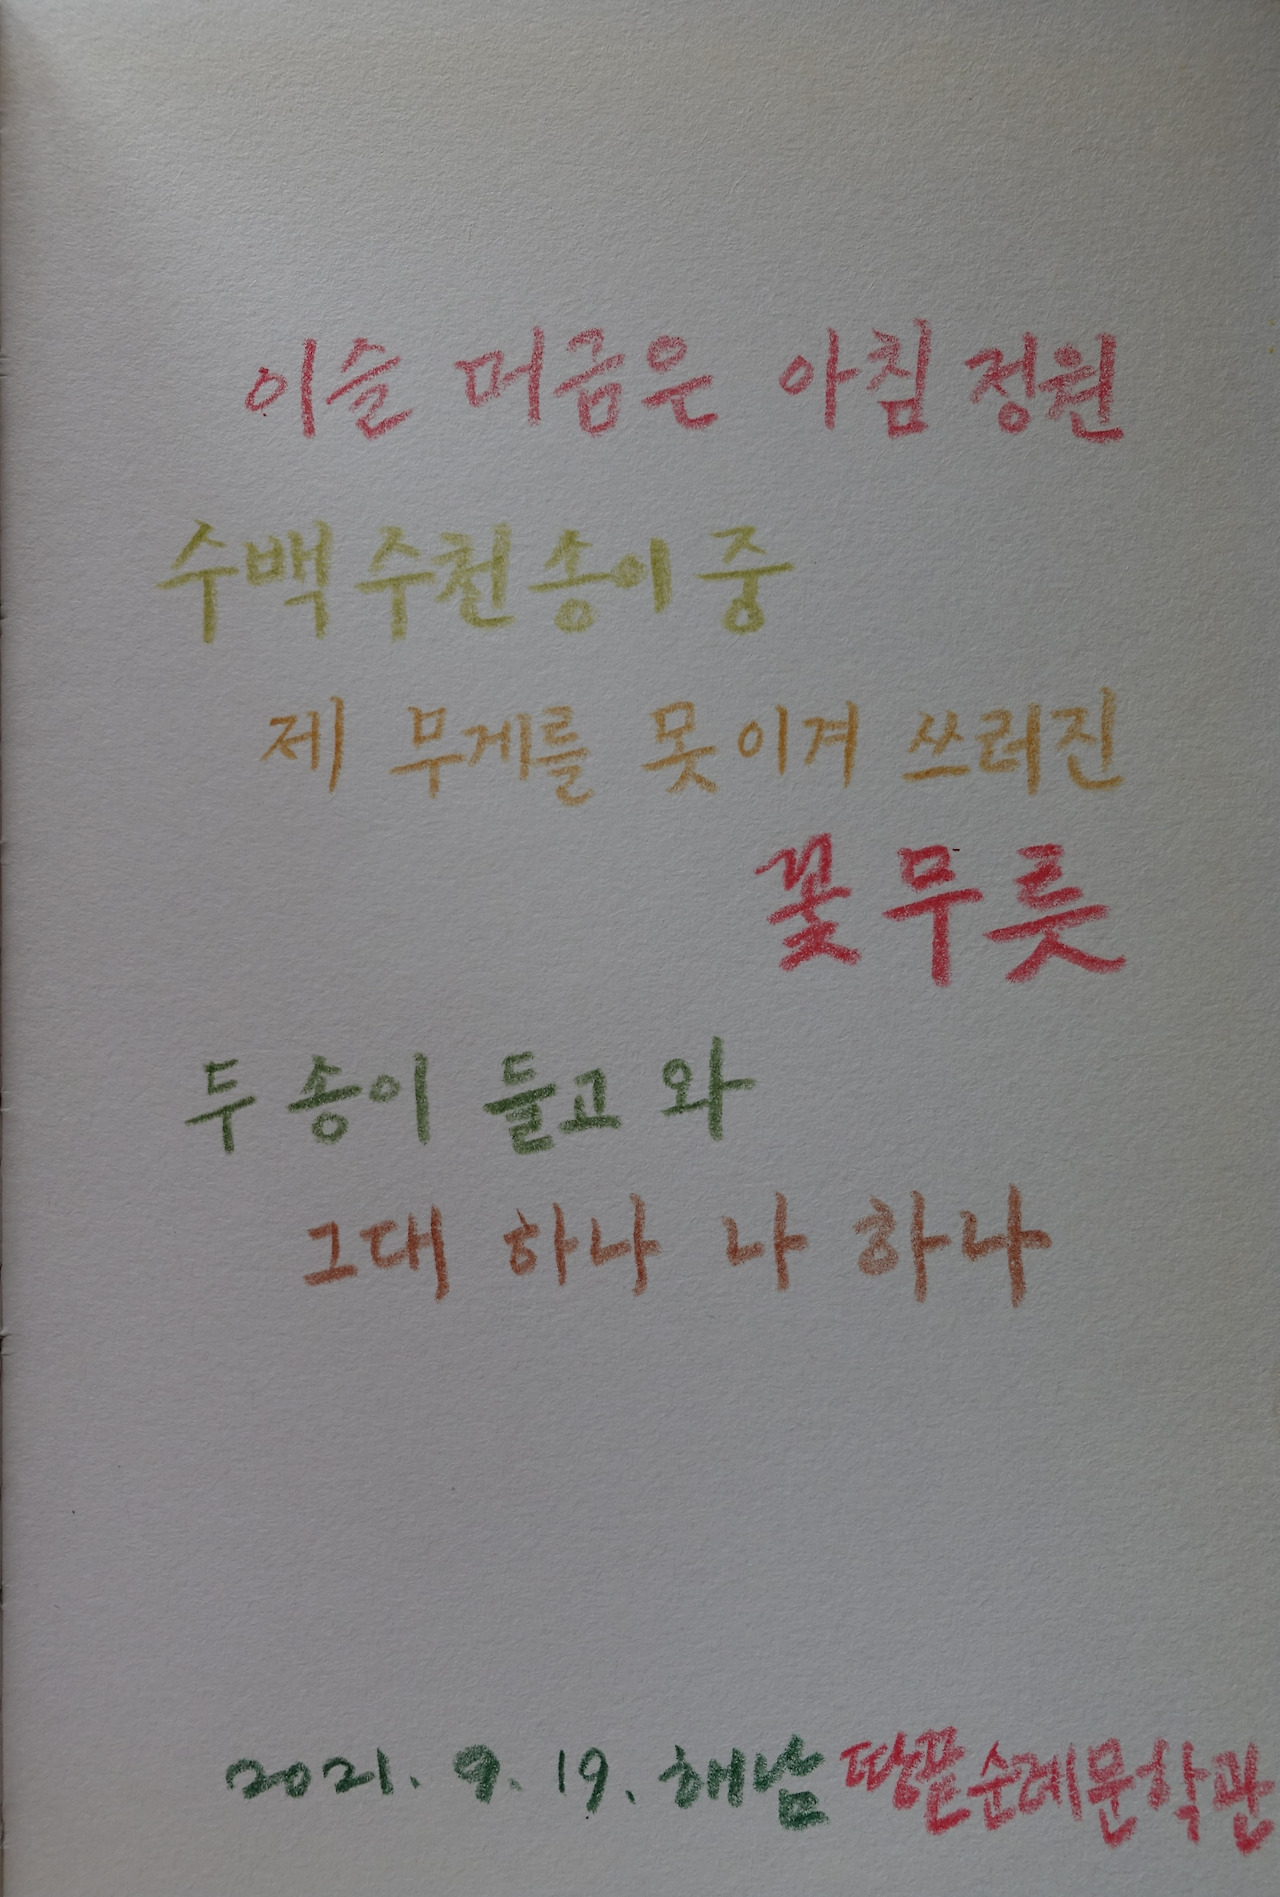 이슬 머금은 아침 정원
수백 수천 송이 중
제 무게를 못 이겨 쓰러진
꽃무릇
두 송이 들고 와
그대 하나 나 하나
2021. 9. 19. 해남 땅끝순례문학관